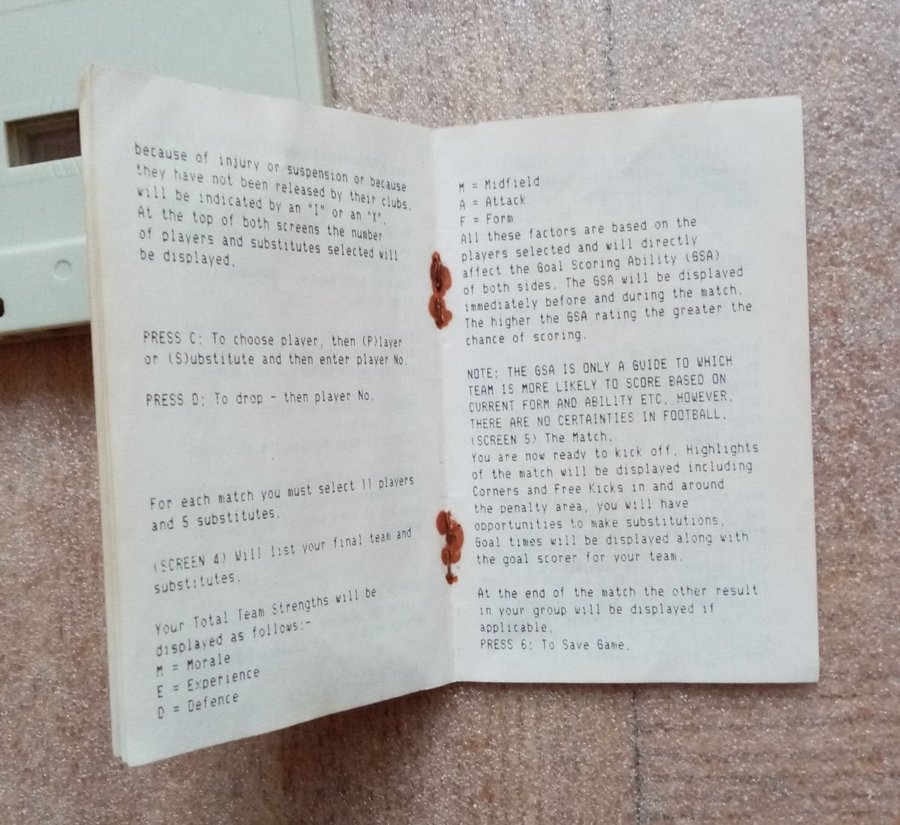 because of injury or suspension or because
they have not been released by their clubs,
will be indicated by an "I" or an "X".
At the top of both screens the number
of players and substitutes selected will
be displayed.
PRESS C: To choose player, then (P)layer
or (S)ubstitute and then enter player No.
PRESS D: To drop - then player No.
For each match you must select 11 players
and 5 substitutes.
(SCREEN 4) Will list your final team and
substitutes.
Your Total Team Strengths will be
displayed as follows:-
M = Morale
E = Experience
D = Defence
M = Midfield
A = Attack
F = Form
All these factors are based on the
players selected and will directly
affect the Goal Scoring Ability (GSA)
of both sides. The GSA will be displayed
immediately before and during the match.
The higher the GSA rating the greater the
chance of scoring.
NOTE: THE GSA IS ONLY A GUIDE TO WHICH
TEAM IS MORE LIKELY TO SCORE BASED ON
CURRENT FORM AND ABILITY ETC. HOWEVER,
THERE ARE NO CERTAINTIES IN FOOTBALL.
(SCREEN 5) The Match.
You are now ready to kick off. Highlights
of the match will be displayed including
Corners and Free Kicks in and around
the penalty area, you will have
opportunities to make substitutions.
Goal times will be displayed along with
the goal scorer for your team.
At the end of the match the other result
in your group will be displayed if
applicable.
PRESS 6: To Save Game.